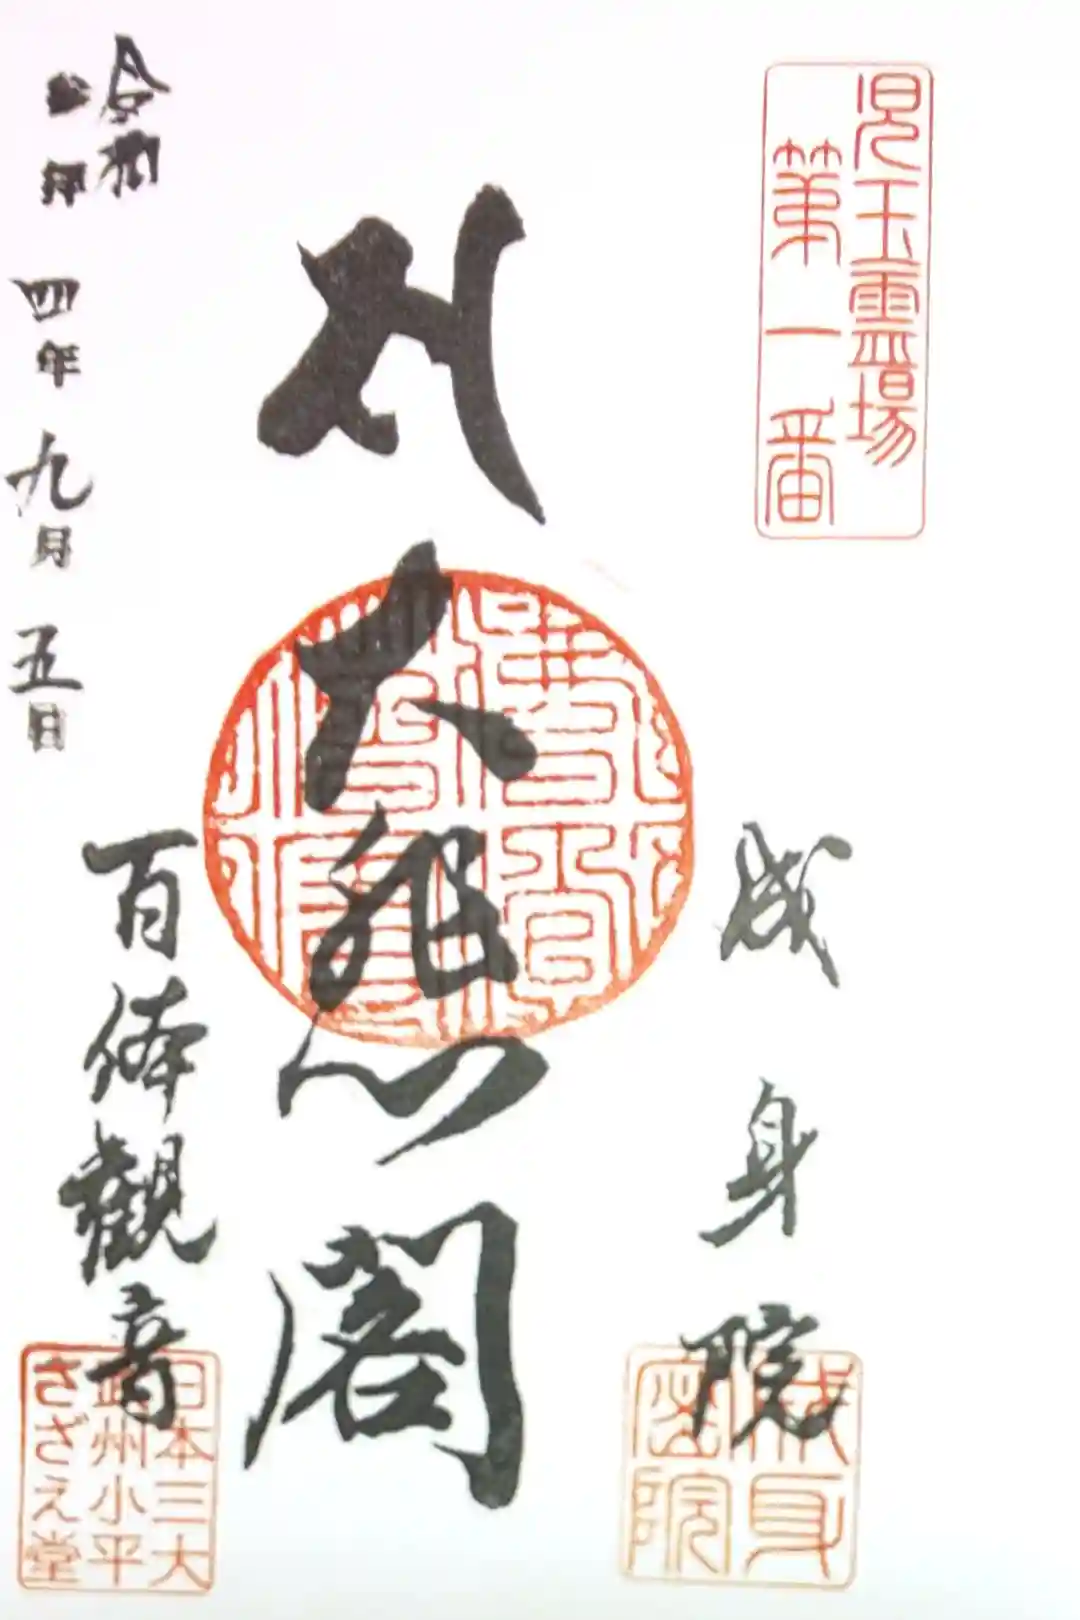 児玉霊場
第一番
成身院
大悲閣
百体觀音
令和
四年九月五日
成身
密院
日本三大
武州小平
さざえ堂